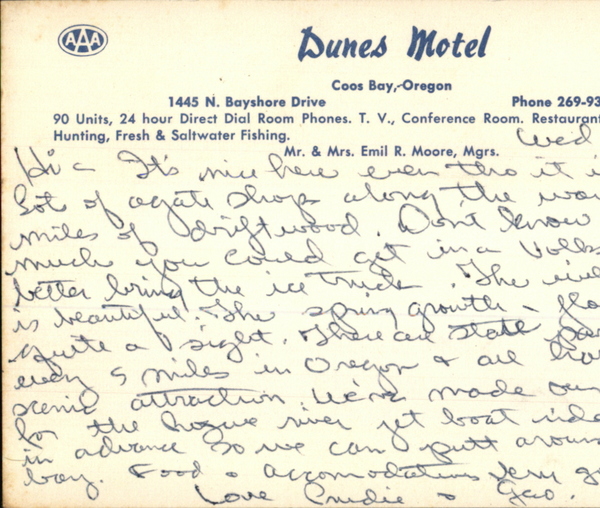 AAA
Dunes Motel
Coos Bay, Oregon
1445 N. Bayshore Drive Phone 269-93
90 Units, 24 hour Direct Dial Room Phones. T. V., Conference Room. Restaurant
Hunting, Fresh & Saltwater Fishing.
Mr. & Mrs. Emil R. Moore, Mgrs.
Wed
Hi - It's nice here even tho it i
Lot of agate shops along the way
miles of driftwood. Don't know
much you could get in a Volks
better bring the ice truck. The
is beautiful. The spring growth - flo
quite a sight. There are state par
every 5 miles in Oregon & all hav
scenic attraction We've made our
for the Rogue river jet boat ride
in advance so we can putt aroun
bay. Food & accomodations very g
Love & Geo.